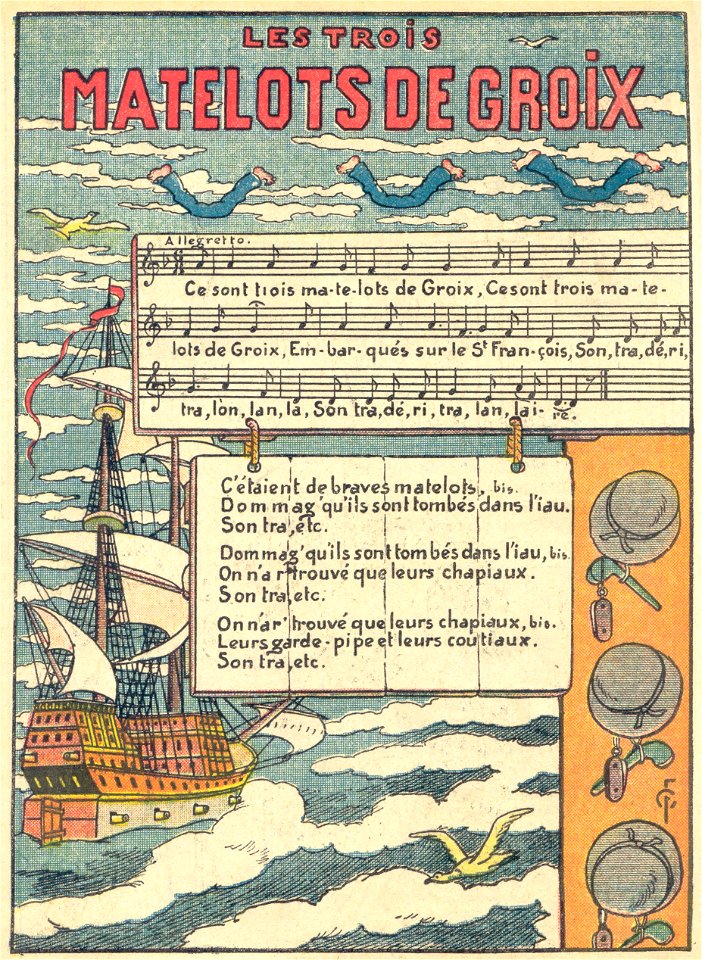 LES TROIS
MATELOTS DE GROIX
Allegretto.
Ce sont trois ma-te-lots de Groix, Ce sont trois ma-te-
lots de Groix, Em-bar-qués sur le St Fran-çois, Son, tra, dé, ri,
tra, lon, lan, la, Son tra, dé, ri, tra, lan, lai-re.
C'étaient de braves matelots, bis.
Dommag' qu'ils sont tombés dans l'iau.
Son tra, etc.
Dommag' qu'ils sont tombés dans l'iau, bis.
On n'a r'trouvé que leurs chapiaux.
Son tra, etc.
On n'a r'trouvé que leurs chapiaux, bis.
Leurs garde-pipe et leurs coutiaux.
Son tra, etc.